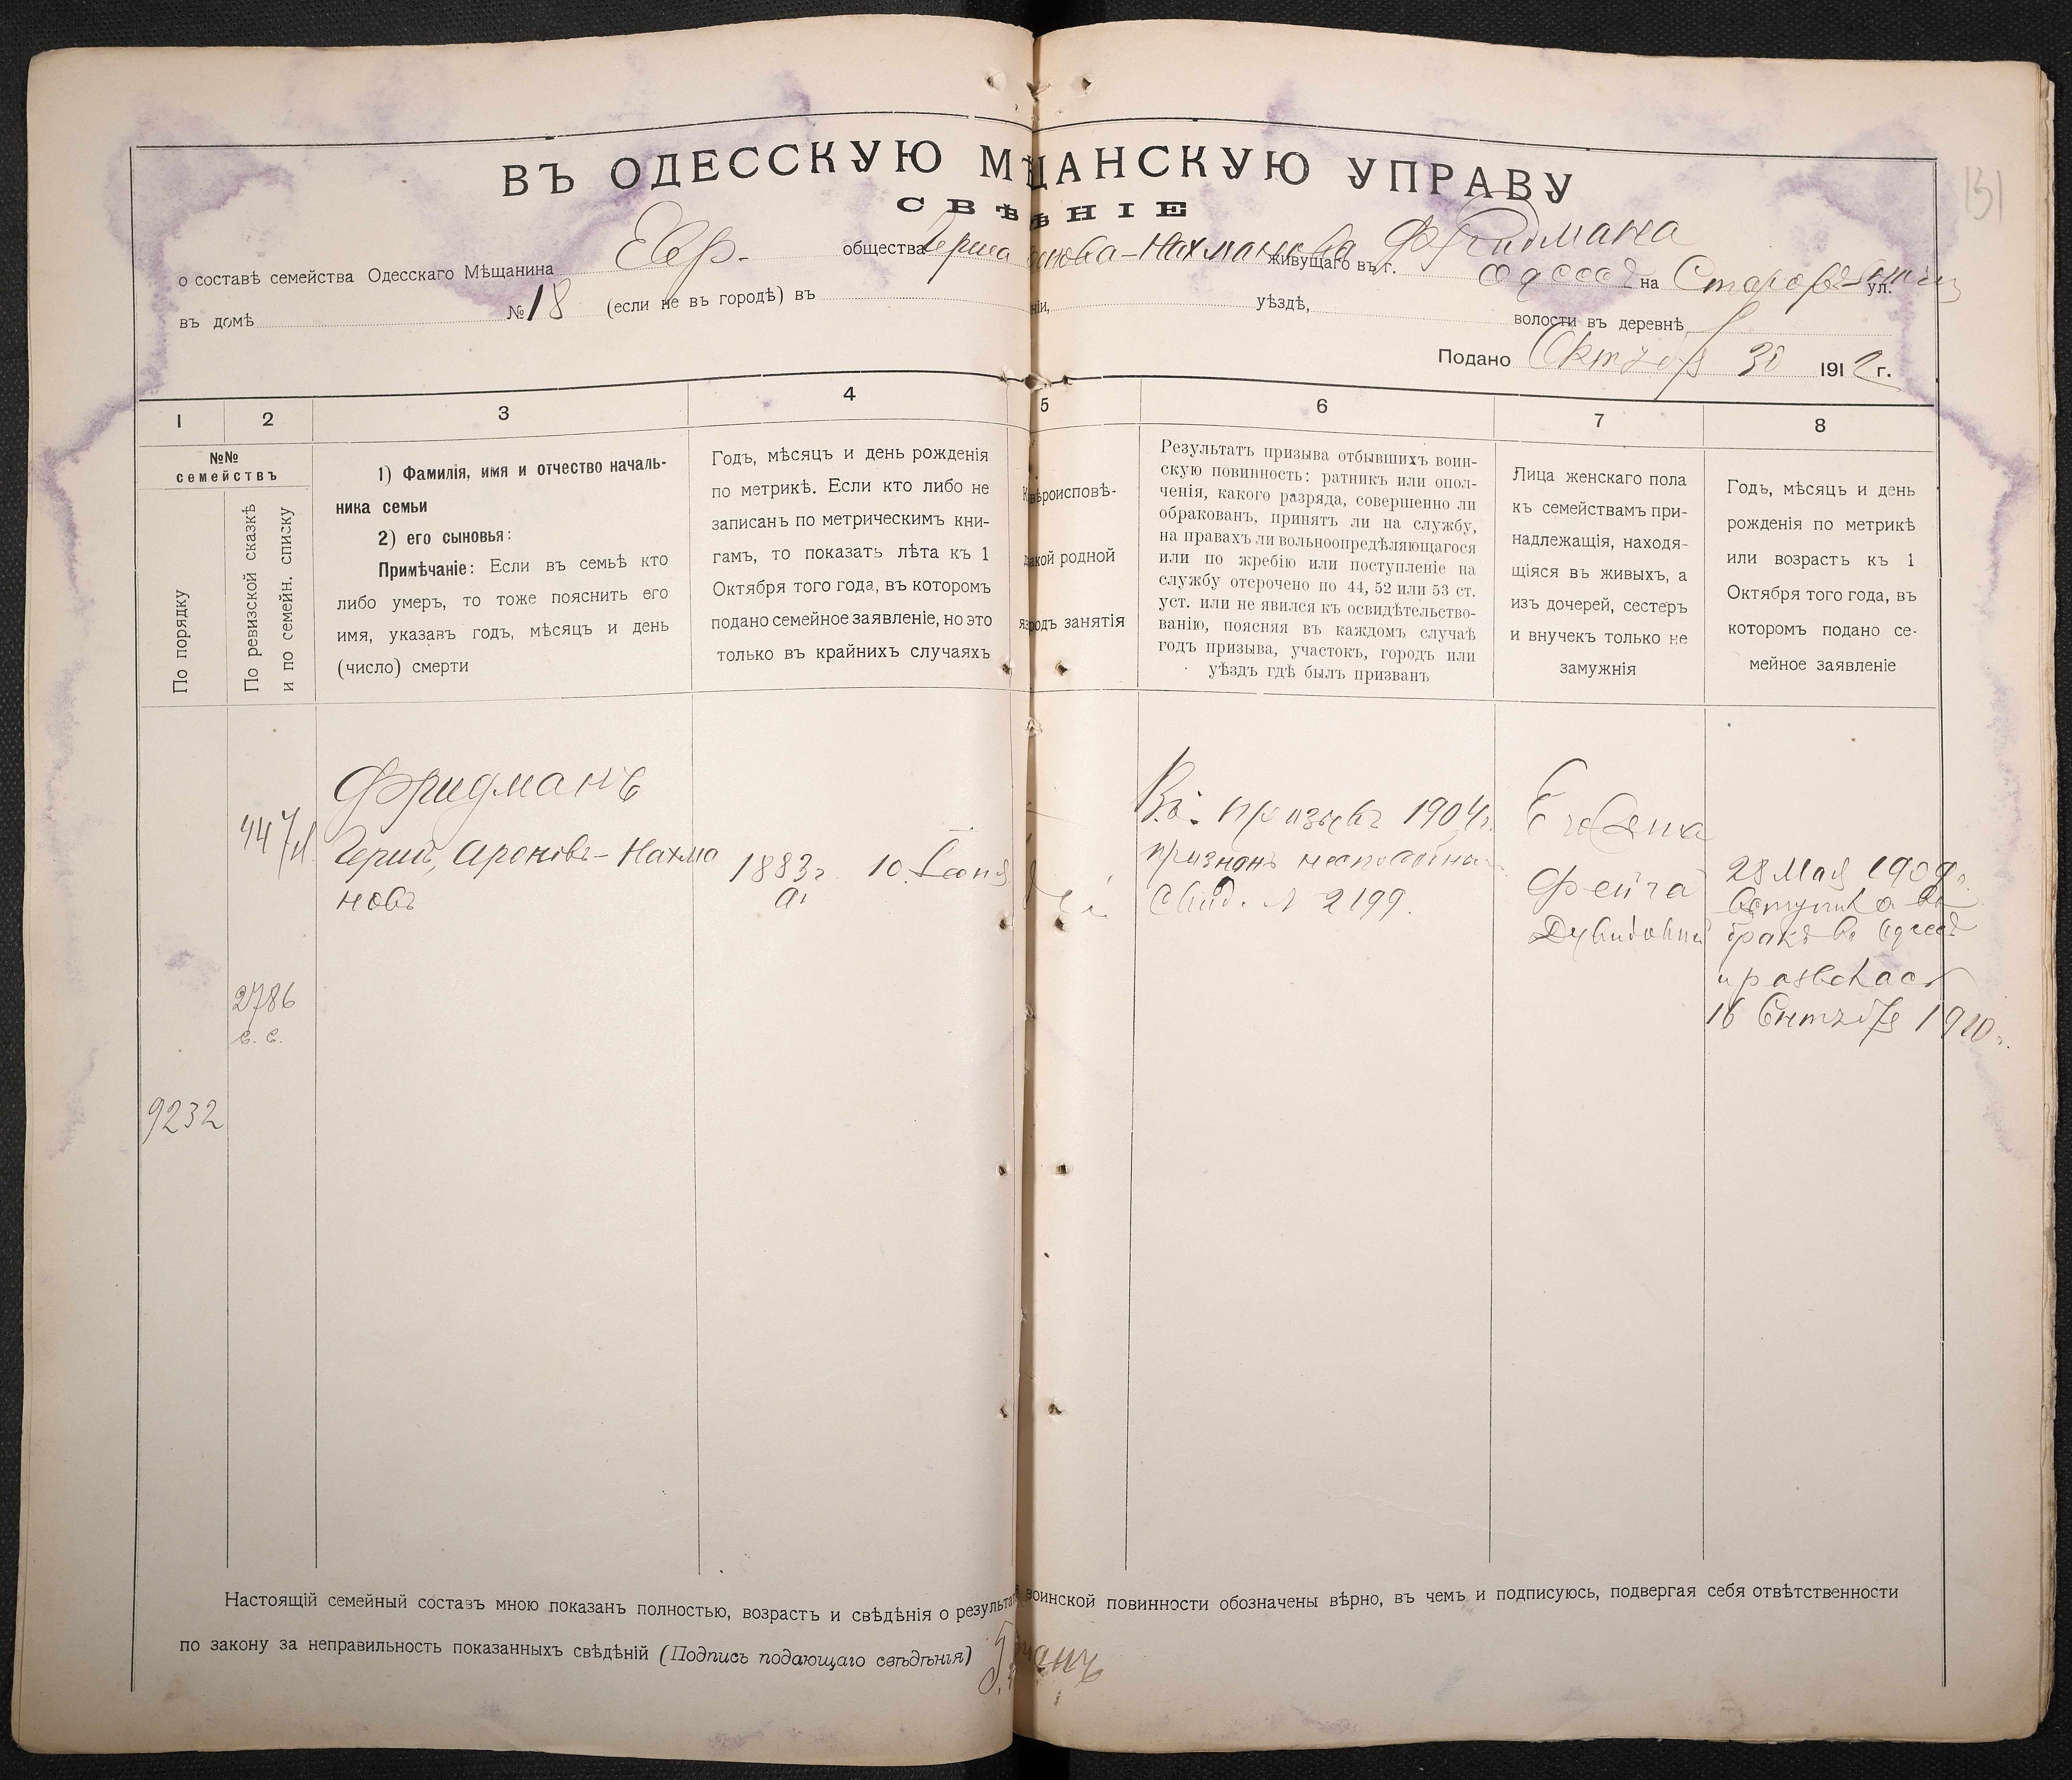 131
ВЪ ОДЕССКУЮ М ЩАНСКУЮ УПРАВУ
СВѢ НІЕ
о составѣ семейства Одесскаго Мѣщанина Евр. общества Герша онова-Нахманова Фридмана живущаго въ г. Одессѣ на ул.
въ домѣ № 18 (если не въ городѣ) въ ніи, уѣздѣ, волости въ деревнѣ
Подано Октября 30 1912 г.
1 2 3 4 5 6 7 8
№№
семействъ
По порядку
По ревизской сказкѣ
и по семейн. списку
1) Фамилія, имя и отчество началь-
ника семьи
2) его сыновья:
Примѣчаніе: Если въ семьѣ кто
либо умеръ, то тоже пояснить его
имя, указавъ годъ, мѣсяцъ и день
(число) смерти
Годъ, мѣсяцъ и день рожденія
по метрикѣ. Если кто либо не
записанъ по метрическимъ кни-
гамъ, то показать лѣта къ 1
Октября того года, въ которомъ
подано семейное заявленіе, но это
только въ крайнихъ случаяхъ
вѣроисповѣ-
акой родной
яз родъ занятія
Результатъ призыва отбывшихъ воин-
скую повинность: ратникъ или опол-
ченія, какого разряда, совершенно ли
обракованъ, принятъ ли на службу,
на правахъ ли вольноопредѣляющагося
или по жребію или поступленіе на
службу отсрочено по 44, 52 или 53 ст.
уст. или не явился къ освидѣтельство-
ванію, поясняя въ каждомъ случаѣ
годъ призыва, участокъ, городъ или
уѣздъ гдѣ былъ призванъ
Лица женскаго пола
къ семействамъ при-
надлежащія, находя-
щіяся въ живыхъ, а
изъ дочерей, сестеръ
и внучек только не
замужнія
Годъ, мѣсяцъ и день
рожденія по метрикѣ
или возрасть къ 1
Октября того года, въ
которомъ подано се-
мейное заявленіе
Фридманъ
447
Гершъ, Ароновъ-Нахма
новъ
1883г. 10 Іюня
Въ призывъ 1904г.
признанъ неспособны
Свид. № 2199.
Его жена
Фейга
Дувидовна
28 Мая 1909г.
вступила въ
бракъ въ Одессѣ
и развелась
16 Сентября 1910г.
2786
в. с.
9232
Настоящій семейный составъ мною показанъ полностью, возрасть и свѣдѣнія о результат воинской повинности обозначены вѣрно, въ чемъ и подписуюсь, подвергая себя отвѣтственности
по закону за неправильность показанныхъ свѣдѣній (Подпись подающаго свѣдѣнія)